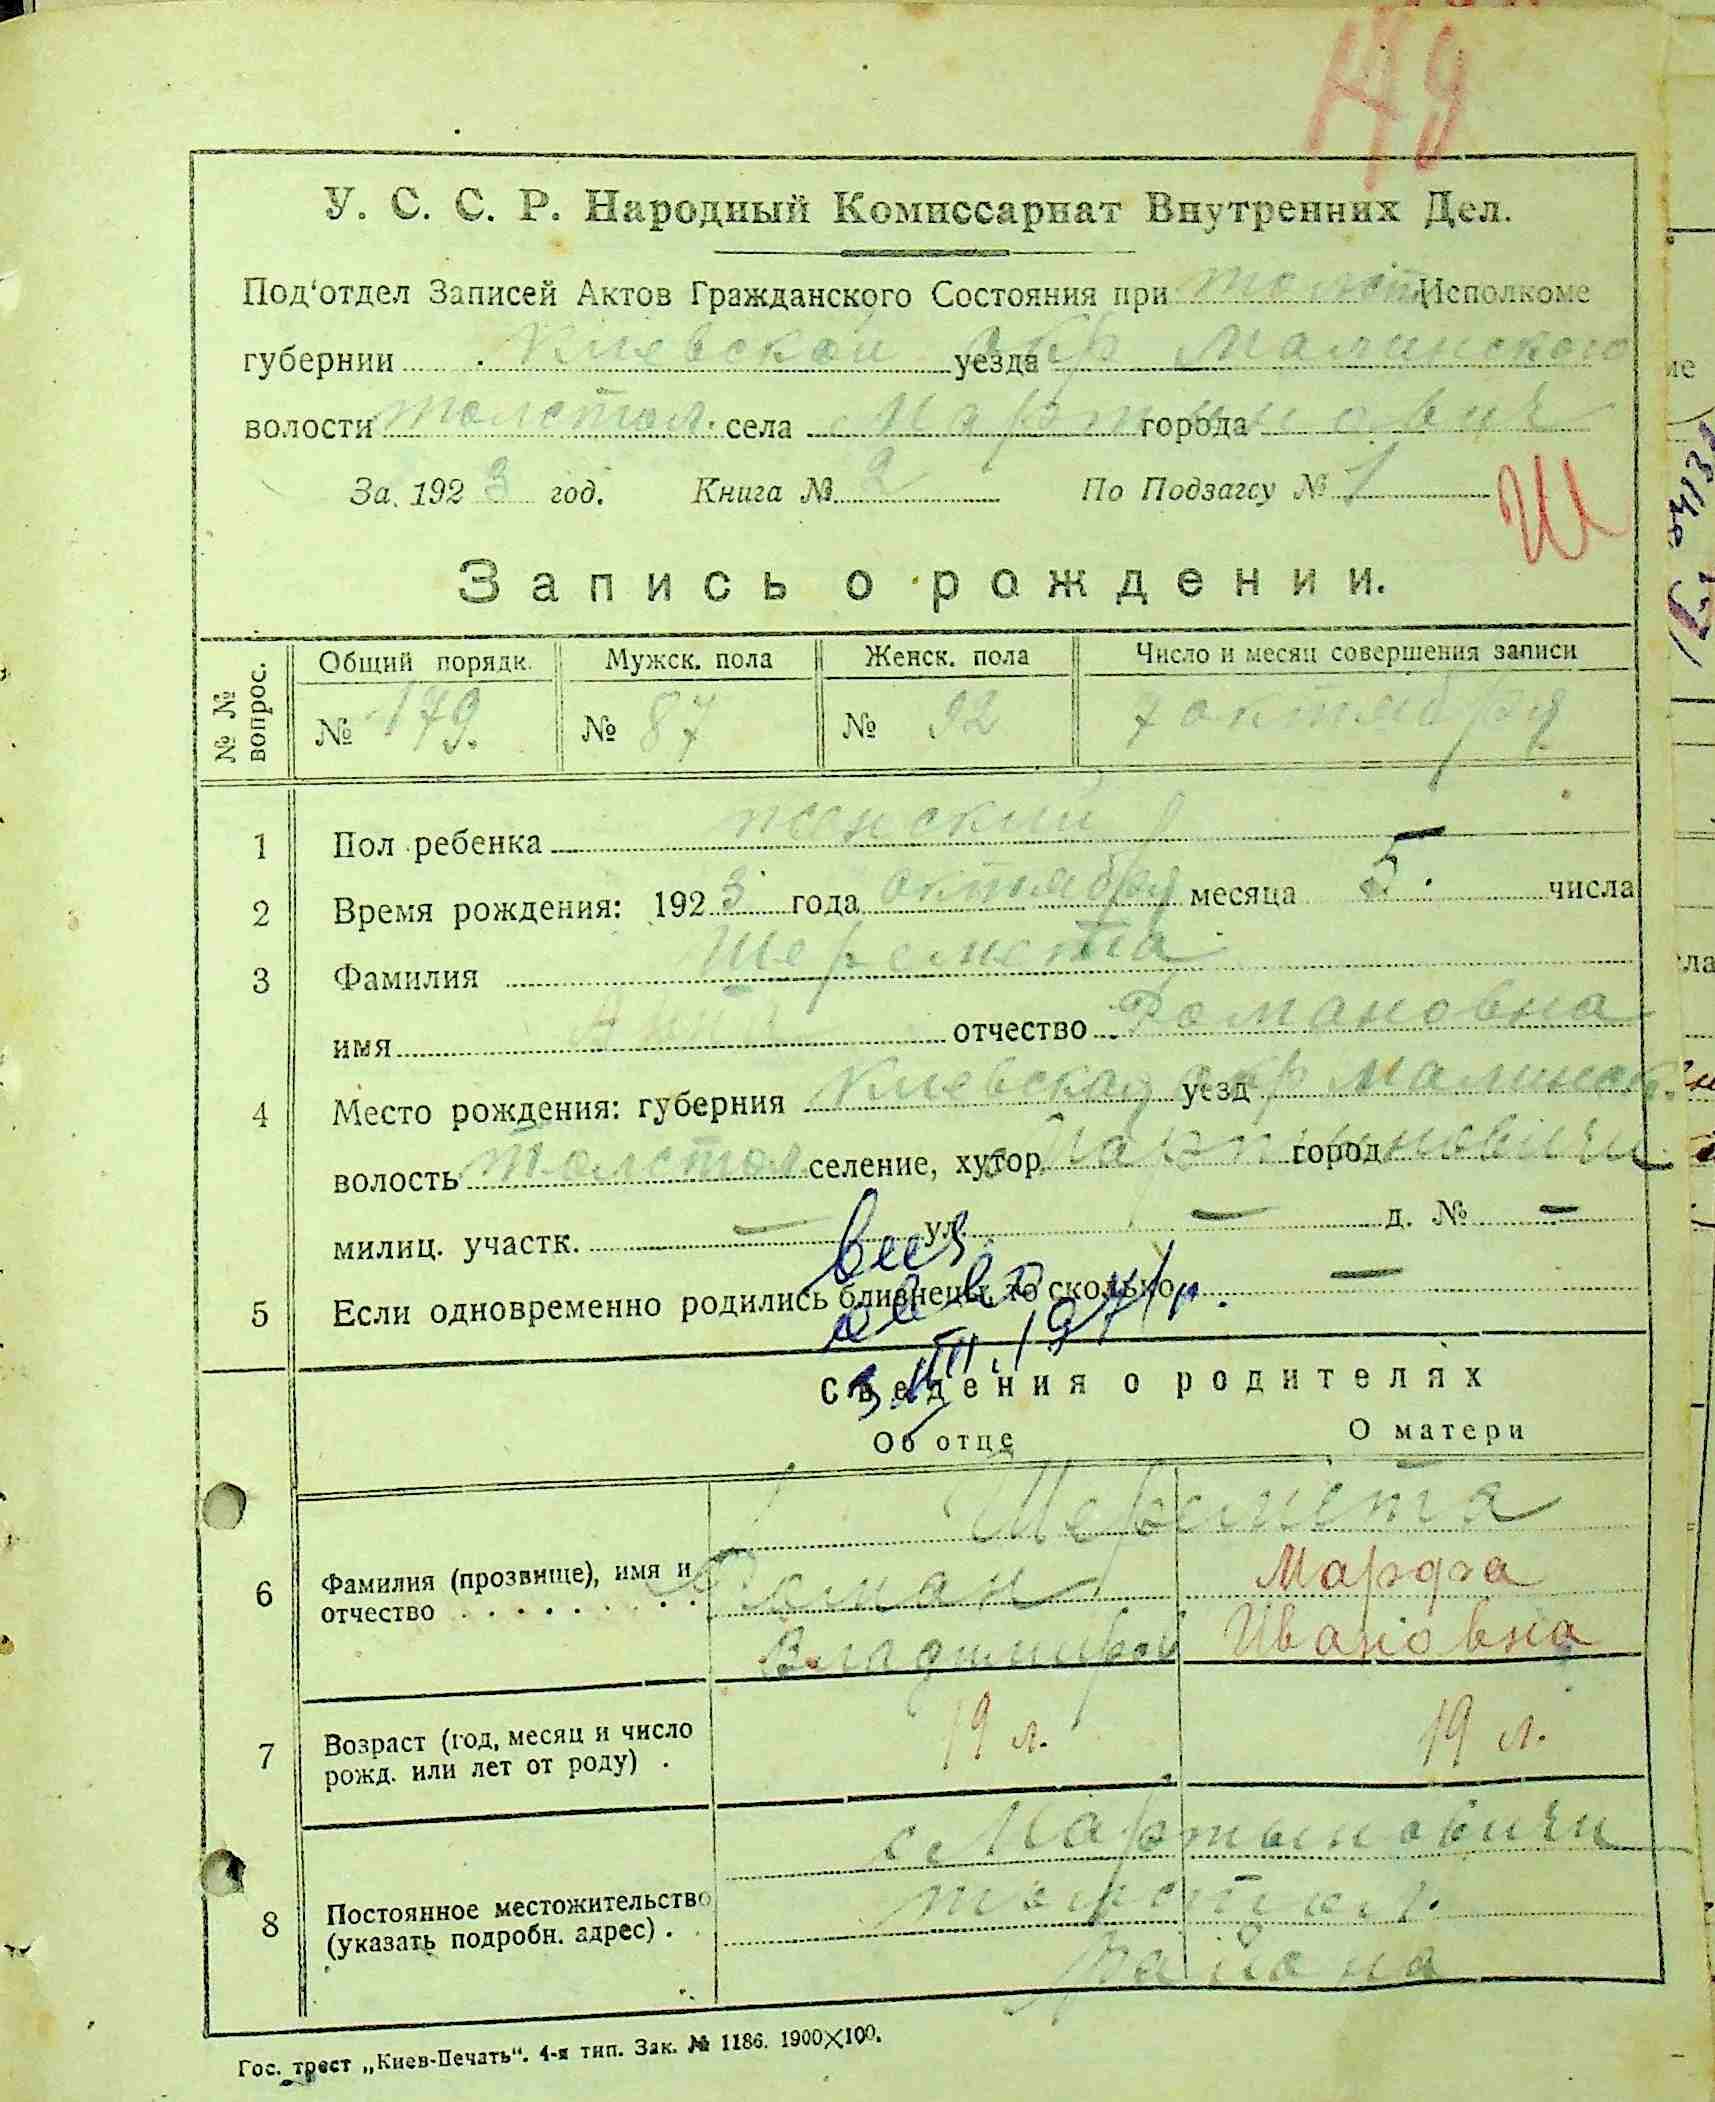 У. С. С. Р. Народный Комиссариат Внутренних Дел.
Под'отдел Записей Актов Гражданского Состояния при толст. Исполкоме
губернии Киевской уезда окр Малинского
волости толстол. села Мартынович города
За 1923 год. Книга № 2 По Подзагсу № 1
Ш
Запись о рождении.
№ № вопрос.
Общий порядк. Мужск. пола Женск. пола Число и месяц совершения записи
№ 179. № 87 № 92 7 октября
1 Пол ребенка женский
2 Время рождения: 1923 года октября месяца 5. числа
3 Фамилия Шеремета
имя Анна отчество Романовна
4 Место рождения: губерния Киевская уезд окр Малинск.
волость Толстол селение, хутор Мартыновичи город
милиц. участк. — ул. — д. № —
5 Если одновременно родились близнецы, то сколько —
Сведения о родителях
Об отце О матери
Шеремета
6 Фамилия (прозвище), имя и отчество Роман Марфа
Владимиров Ивановна
7 Возраст (год, месяц и число рожд. или лет от роду) 19 л. 19 л.
с. Мартыновичи
8 Постоянное местожительство (указать подробн. адрес) толстол.
района
Гос. трест „Киев-Печать". 4-я тип. Зак. № 1186. 1900×100.